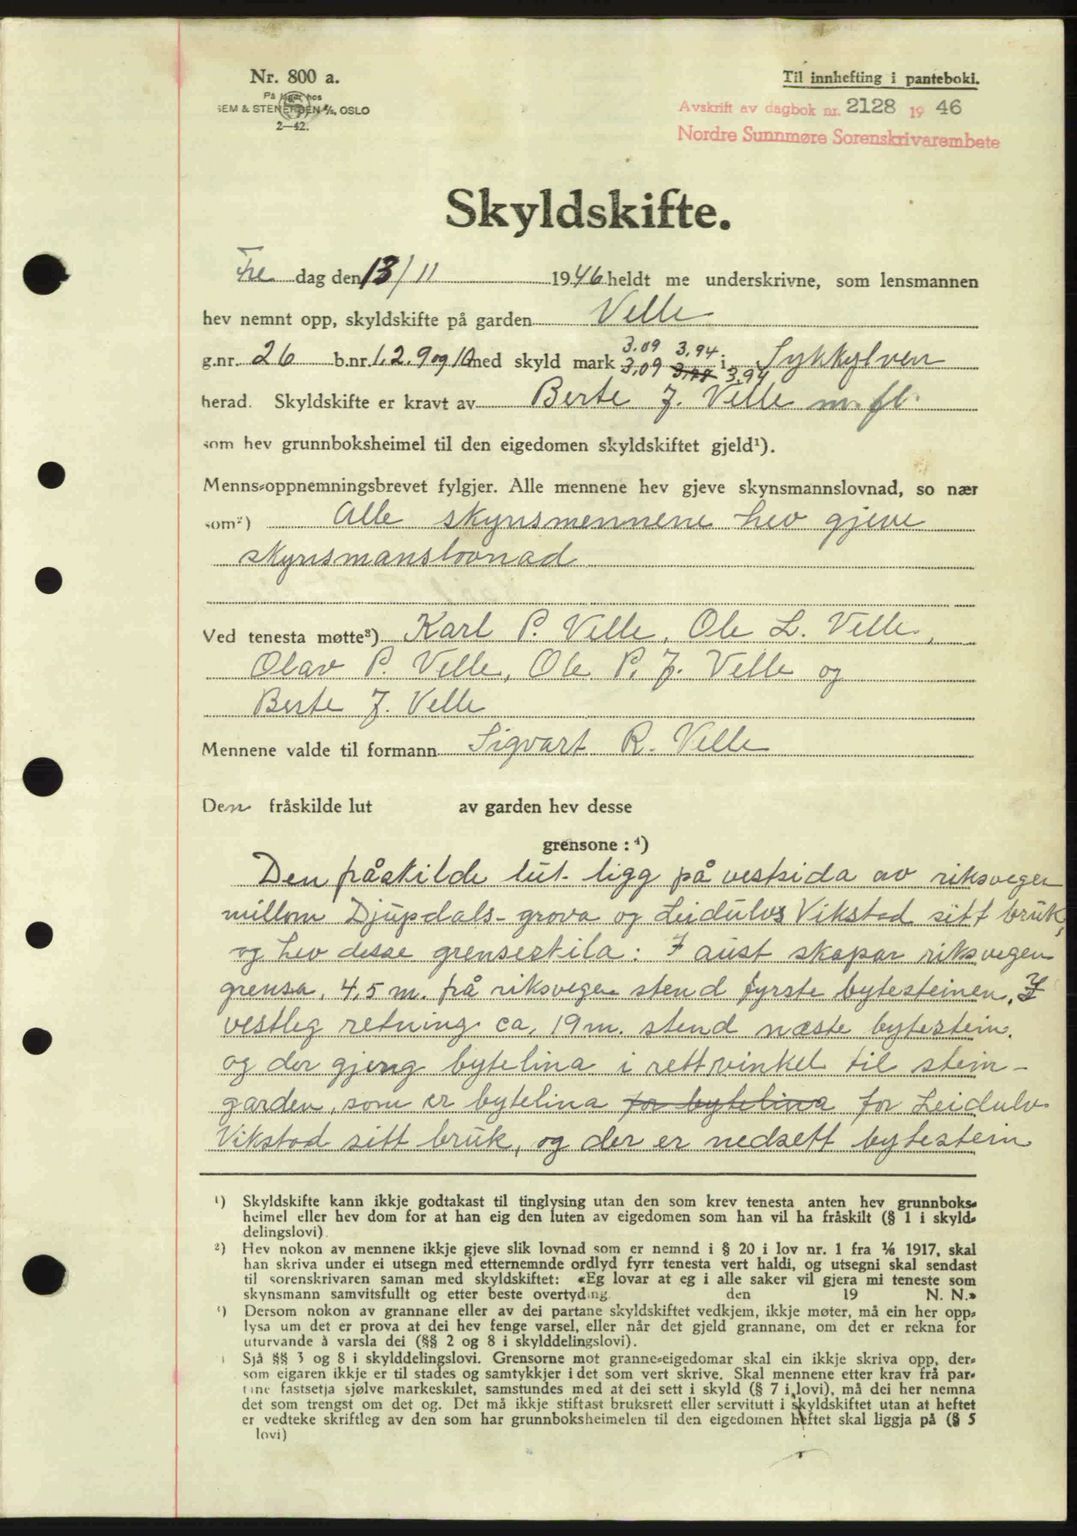 Nr. 800 a.
På lager hos
SEM & STENERSEN A/S, OSLO
2—42.
Til innhefting i panteboki.
Avskrift av dagbok nr. 2128 1946
Nordre Sunnmøre Sorenskrivarembete
Skyldskifte.
Fre dag den 13/11 1946 heldt me underskrivne, som lensmannen
hev nemnt opp, skyldskifte på garden Velle
3.09 3.94
g.nr. 26 b.nr. 1, 2, 9 og 10 med skyld mark 3,09 3,94 i Sykkylven
herad. Skyldskifte er kravt av Berte J. Velle m. fl.
som hev grunnboksheimel til den eigedomen skyldskiftet gjeld¹).
Menns-oppnemningsbrevet fylgjer. Alle mennene hev gjeve skynsmannslovnad, so nær
som²) Alle skynsmennene hev gjeve
skynsmanslovnad
Ved tenesta møtte³) Karl P. Velle, Ole L. Velle,
Olav P. Velle, Ole P. J. Velle og
Berte J. Velle
Mennene valde til formann Sigvart R. Velle
Den fråskilde lut av garden hev desse
grensone : ⁴)
Den fråskilde lut ligg på vestsida av riksvegen
millom Djupdals-grova og Leidulvs Vikstad sitt bruk,
og hev desse grensestila: I aust skapar riksvegen
grensa, 4,5 m. frå riksvegen stend fyrste bytesteinen. I
vestleg retning ca, 19 m. stend næste bytestein.
og der gjeng bytelina i rettvinkel til stein-
garden, som er bytelina for bytelina for Leidulv
Vikstad sitt bruk, og der er nedsett bytestein
¹) Skyldskifte kann ikkje godtakast til tinglysing utan den som krev tenesta anten hev grunnboks-
heimel eller hev dom for at han eig den luten av eigedomen som han vil ha fråskilt (§ 1 i skyld-
delingslovi).
²) Hev nokon av mennene ikkje gjeve slik lovnad som er nemnd i § 20 i lov nr. 1 fra 1/6 1917, skal
han skriva under ei utsegn med etternemnde ordlyd fyrr tenesta vert haldi, og utsegni skal sendast
til sorenskrivaren saman med skyldskiftet: «Eg lovar at eg i alle saker vil gjera mi teneste som
skynsmann samvitsfullt og etter beste overtyding. den 19 N. N.»
³) Dersom nokon av grannane eller av dei partane skyldskiftet vedkjem, ikkje møter, må ein her opp-
lysa um det er prova at dei hev fenge varsel, eller når det gjeld grannane, om det er rekna for
uturvande å varsla dei (§§ 2 og 8 i skylddelingslovi).
Sjå §§ 3 og 8 i skylddelingslovi. Grensorne mot granne-eigedomar skal ein ikkje skriva opp, der-
som eigaren ikkje er til stades og samtykkjer i det som vert skrive. Skal mennene etter krav frå par-
tane fastsetja sjølve markeskilet, samstundes med at dei sett i skyld (§ 7 i lovi), må dei her nemna
det som trengst om det og. Det må ikkje stiftast bruksrett eller servitutt i skyldskiftet utan at heftet
er vedteke skriftleg av den som har grunnboksheimelen til den eigedomen heftet skal liggja på (§ 5
lovi)